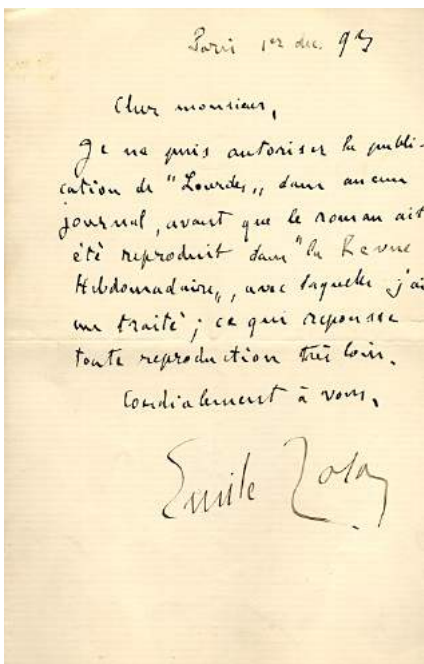 Paris 1er déc. 93
Cher monsieur,
Je ne puis autoriser la publi-
cation de "Lourdes„ dans aucun
journal, avant que le roman ait
été reproduit dans "la Revue
Hebdomadaire„, avec laquelle j'ai
un traité ; ce qui repousse
toute reproduction très loin.
Cordialement à vous,
Emile Zola